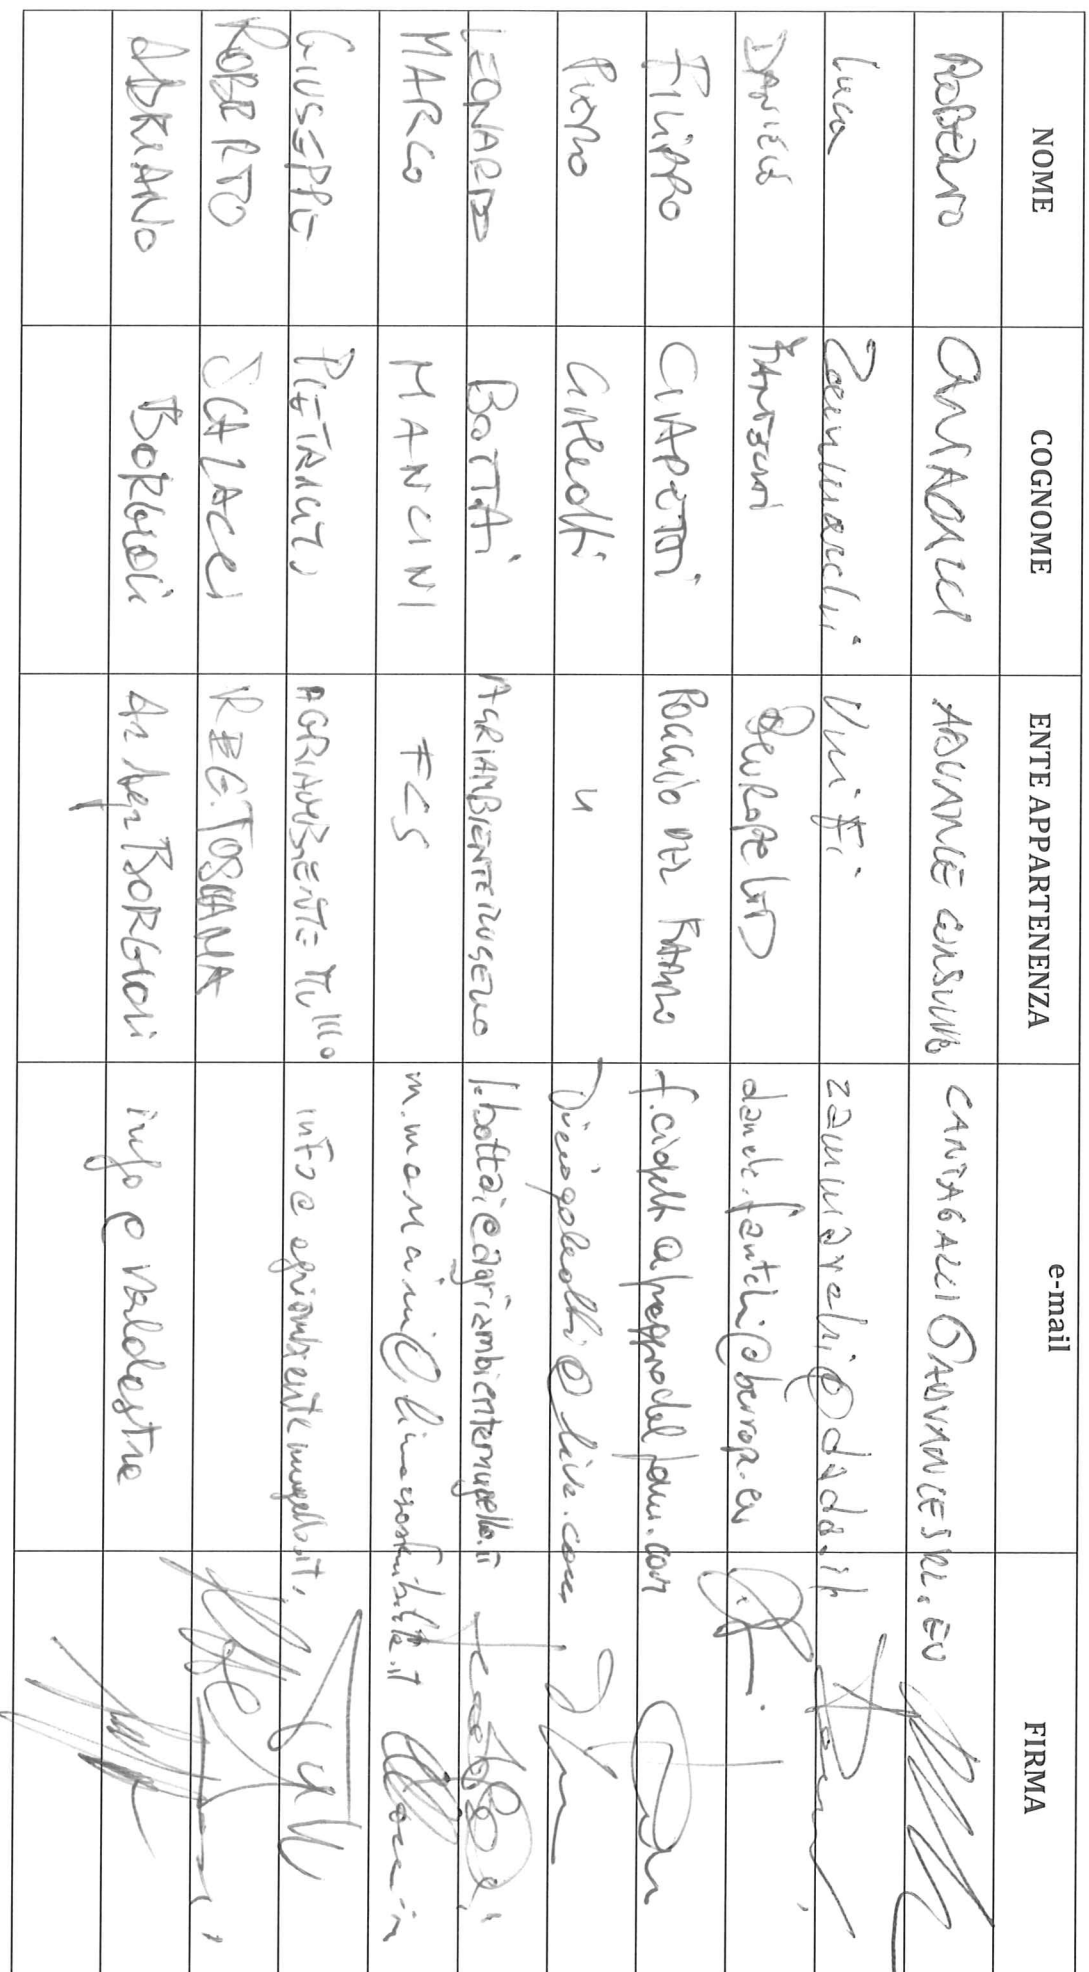 NOME COGNOME ENTE APPARTENENZA e-mail FIRMA
ROBERTO CANTAGALLI ADVANCE CONSULTING CANTAGALLI@ADVANCESRL.EU
Luca Zammarchi Unifi zammarchi@dada.it
DANIELE FANTECHI BEUROPE LTD daniele.fantechi@beurope.eu
FILIPPO CIAPETTI POGGIO DEL FARRO
Galeotti "
LEONARDO BOTTAI AGRIAMBIENTE MUGELLO l.bottai@agriambientemugello.it
MARCO MANCINI FCS m.mancini@climaesostenibilita.it
GIUSEPPE AGRIAMBIENTE info@agriambientemugello.it
ROBERTO SCALACCI REG. TOSCANA
ADRIANO BORGIOLI Az Agr BORGIOLI info@valdastra